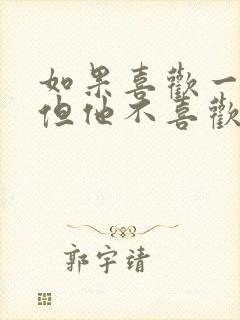 如果喜歡一
但他不喜歡
郭宇靖